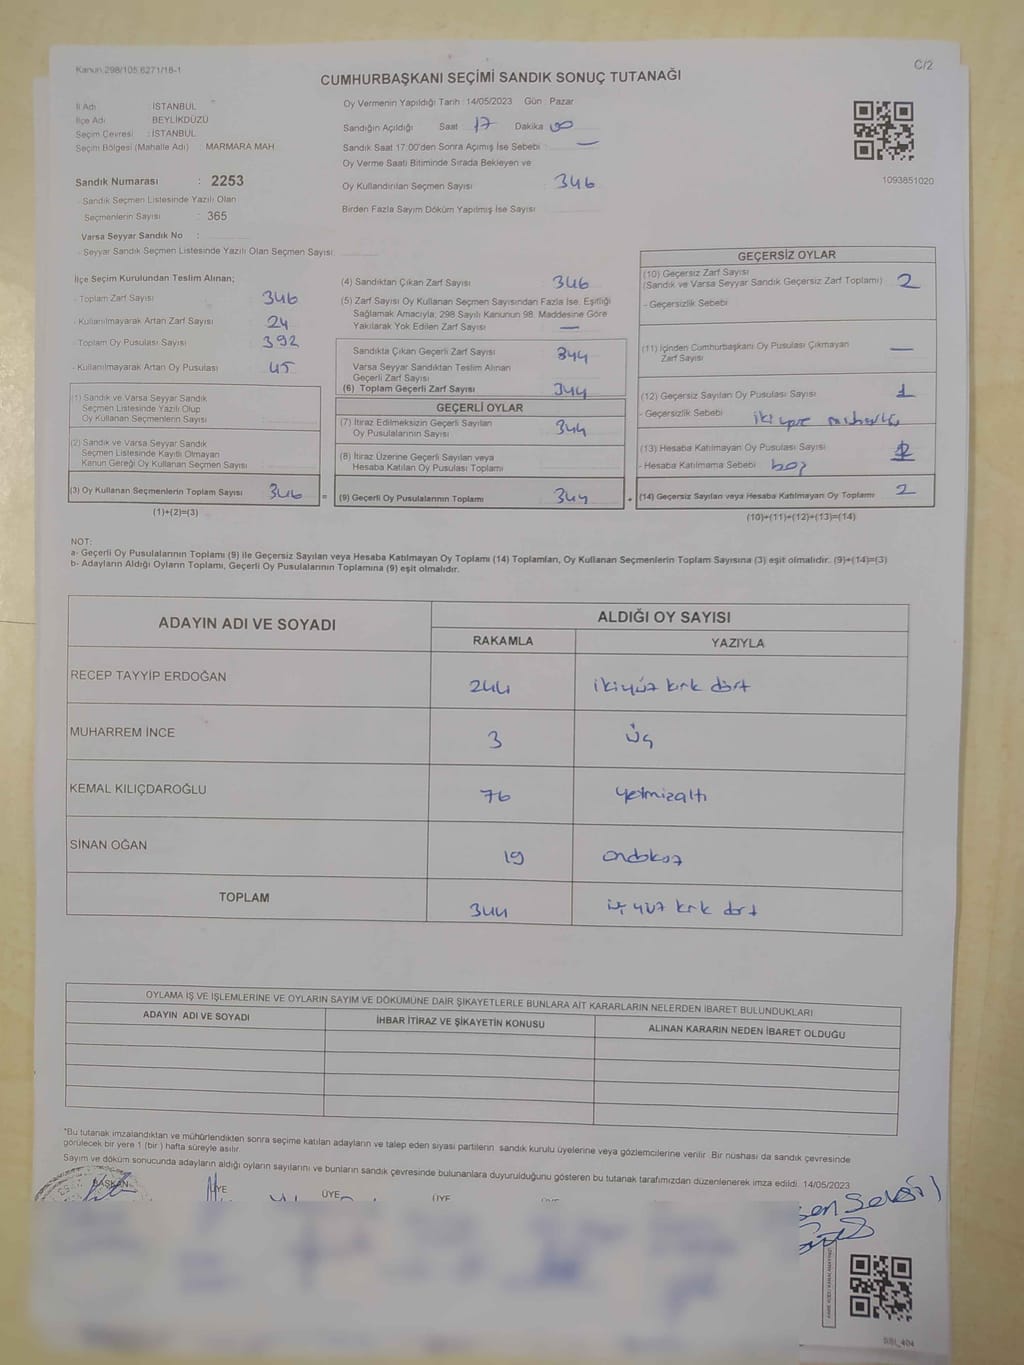 Kanun 298/105,6271/18-1
C/2
CUMHURBAŞKANI SEÇİMİ SANDIK SONUÇ TUTANAĞI
İl Adı : İSTANBUL
İlçe Adı : BEYLİKDÜZÜ
Seçim Çevresi : İSTANBUL
Seçim Bölgesi (Mahalle Adı) : MARMARA MAH.
Sandık Numarası : 2253
- Sandık Seçmen Listesinde Yazılı Olan
Seçmenlerin Sayısı : 365
Varsa Seyyar Sandık No :
- Seyyar Sandık Seçmen Listesinde Yazılı Olan Seçmen Sayısı:
Oy Vermenin Yapıldığı Tarih : 14/05/2023 Gün : Pazar
Sandığın Açıldığı Saat : 17 Dakika : 00
Sandık Saat 17:00'den Sonra Açımış İse Sebebi : —
Oy Verme Saati Bitiminde Sırada Bekleyen ve
Oy Kullandırılan Seçmen Sayısı : 346
Birden Fazla Sayım Döküm Yapılmış İse Sayısı :
1093851020
İlçe Seçim Kurulundan Teslim Alınan;
- Toplam Zarf Sayısı 346
- Kullanılmayarak Artan Zarf Sayısı 24
- Toplam Oy Pusulası Sayısı 392
- Kullanılmayarak Artan Oy Pusulası 45
(1) Sandık ve Varsa Seyyar Sandık
Seçmen Listesinde Yazılı Olup
Oy Kullanan Seçmenlerin Sayısı :
(2) Sandık ve Varsa Seyyar Sandık
Seçmen Listesinde Kayıtlı Olmayan
Kanun Gereği Oy Kullanan Seçmen Sayısı
(3) Oy Kullanan Seçmenlerin Toplam Sayısı 346
(1)+(2)=(3)
=
(4) Sandıktan Çıkan Zarf Sayısı 346
(5) Zarf Sayısı Oy Kullanan Seçmen Sayısından Fazla İse, Eşitliği
Sağlamak Amacıyla, 298 Sayılı Kanunun 98. Maddesine Göre
Yakılarak Yok Edilen Zarf Sayısı —
Sandıkta Çıkan Geçerli Zarf Sayısı 344
Varsa Seyyar Sandıktan Teslim Alınan
Geçerli Zarf Sayısı
(6) Toplam Geçerli Zarf Sayısı 344
GEÇERLİ OYLAR
(7) İtiraz Edilmeksizin Geçerli Sayılan
Oy Pusulalarının Sayısı 344
(8) İtiraz Üzerine Geçerli Sayılan veya
Hesaba Katılan Oy Pusulası Toplamı
(9) Geçerli Oy Pusulalarının Toplamı 344
+
GEÇERSİZ OYLAR
(10) Geçersiz Zarf Sayısı
(Sandık ve Varsa Seyyar Sandık Geçersiz Zarf Toplamı) 2
- Geçersizlik Sebebi
(11) İçinden Cumhurbaşkanı Oy Pusulası Çıkmayan
Zarf Sayısı —
(12) Geçersiz Sayılan Oy Pusulası Sayısı 1
- Geçersizlik Sebebi
(13) Hesaba Katılmayan Oy Pusulası Sayısı
- Hesaba Katılmama Sebebi boş
(14) Geçersiz Sayılan veya Hesaba Katılmayan Oy Toplamı 2
(10)+(11)+(12)+(13)=(14)
NOT:
a- Geçerli Oy Pusulalarının Toplamı (9) ile Geçersiz Sayılan veya Hesaba Katılmayan Oy Toplamı (14) Toplamları, Oy Kullanan Seçmenlerin Toplam Sayısına (3) eşit olmalıdır. (9)+(14)=(3)
b- Adayların Aldığı Oyların Toplamı, Geçerli Oy Pusulalarının Toplamına (9) eşit olmalıdır.
ADAYIN ADI VE SOYADI ALDIĞI OY SAYISI
RAKAMLA YAZIYLA
RECEP TAYYİP ERDOĞAN 244 ikiyüz kırk dört
MUHARREM İNCE 3 üç
KEMAL KILIÇDAROĞLU 76 yetmişaltı
SİNAN OĞAN 19 ondokuz
TOPLAM 344 üç yüz kırk dört
OYLAMA İŞ VE İŞLEMLERİNE VE OYLARIN SAYIM VE DÖKÜMÜNE DAİR ŞİKAYETLERLE BUNLARA AİT KARARLARIN NELERDEN İBARET BULUNDUKLARI
ADAYIN ADI VE SOYADI İHBAR İTİRAZ VE ŞİKAYETİN KONUSU ALINAN KARARIN NEDEN İBARET OLDUĞU
*Bu tutanak imzalandıktan ve mühürlendikten sonra seçime katılan adayların ve talep eden siyasi partilerin sandık kurulu üyelerine veya gözlemcilerine verilir. Bir nüshası da sandık çevresinde
görülecek bir yere 1 (bir ) hafta süreyle asılır
Sayım ve döküm sonucunda adayların aldığı oyların sayılarını ve bunların sandık çevresinde bulunanlara duyurulduğunu gösteren bu tutanak tarafımızdan düzenlenerek imza edildi. 14/05/2023
BAŞKAN ÜYE ÜYE ÜYE
SBL_404